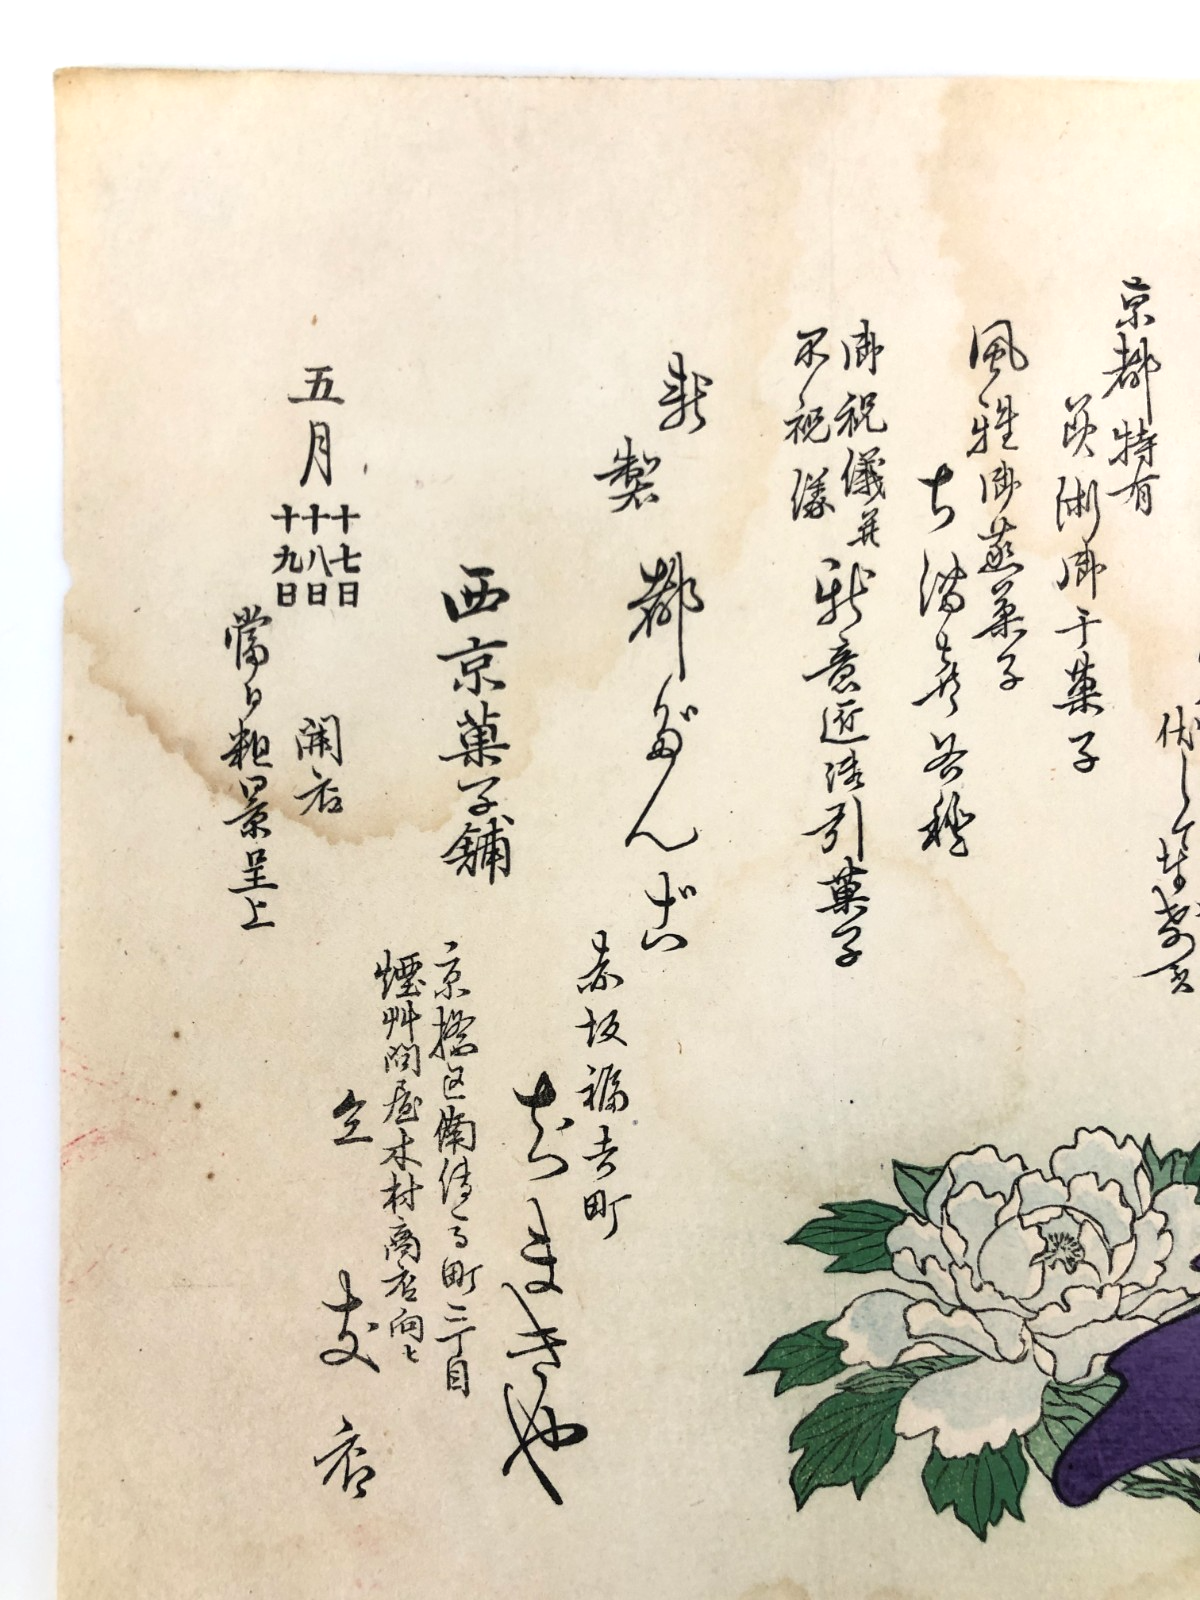 京都特有
美術御干菓子
風雅御蒸菓子
御祝儀并
不祝儀
新意匠引菓子
新製 都だんご
赤坂福吉町
西京菓子舗 ちまきや
京橋区南伝馬町三丁目
煙艸問屋木村商店向ヒ
仝 支店
五月
十七日
十八日
十九日
開店
當日粗景呈上